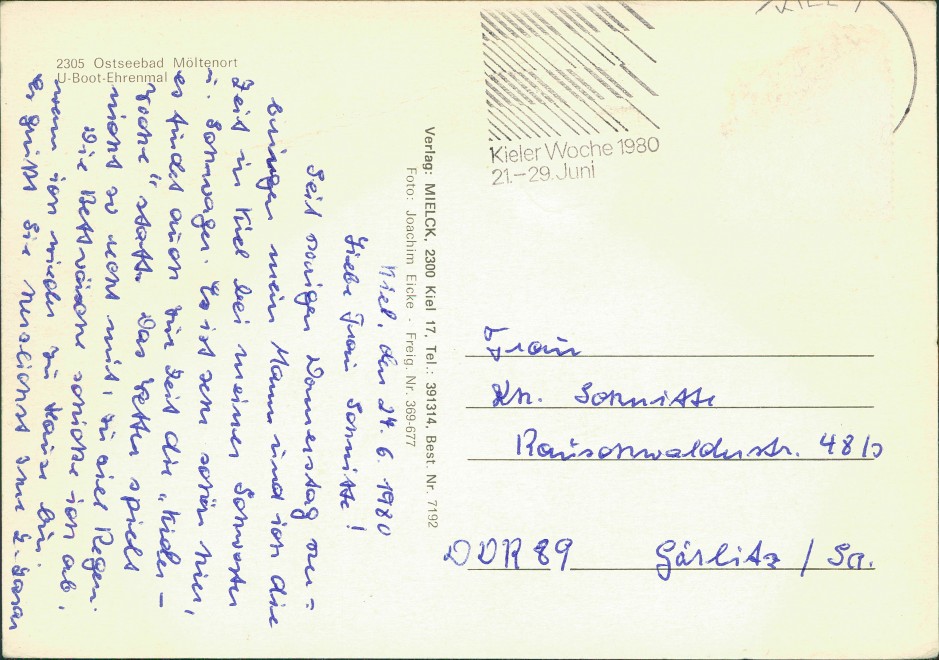 2305 Ostseebad Möltenort
U-Boot-Ehrenmal
Kiel, den 24. 6. 1980
Liebe Frau Schnitte!
Seit vorigen Donnerstag ver=
bringen mein Mann und ich die
Zeit in Kiel bei meiner Schwester
u. Schwager. Es ist sehr schön hier,
es findet auch zur Zeit die „Kieler-
Woche" statt. Das Wetter spielt
nicht so recht mit, zu viel Regen.
Die Bettwäsche schicke ich ab,
wenn ich wieder zu Hause bin.
Es grüßt Sie herzlichst Ihre E.
Verlag: MIELCK, 2300 Kiel 17, Tel.: 391314, Best. Nr. 7192
Foto: Joachim Eicke - Freig. Nr. 369-677
KIEL 1
Kieler Woche 1980
21.–29. Juni
Frau
Kh. Schnitte
Rauschwalderstr. 48b
DDR 89 Görlitz / Sa.